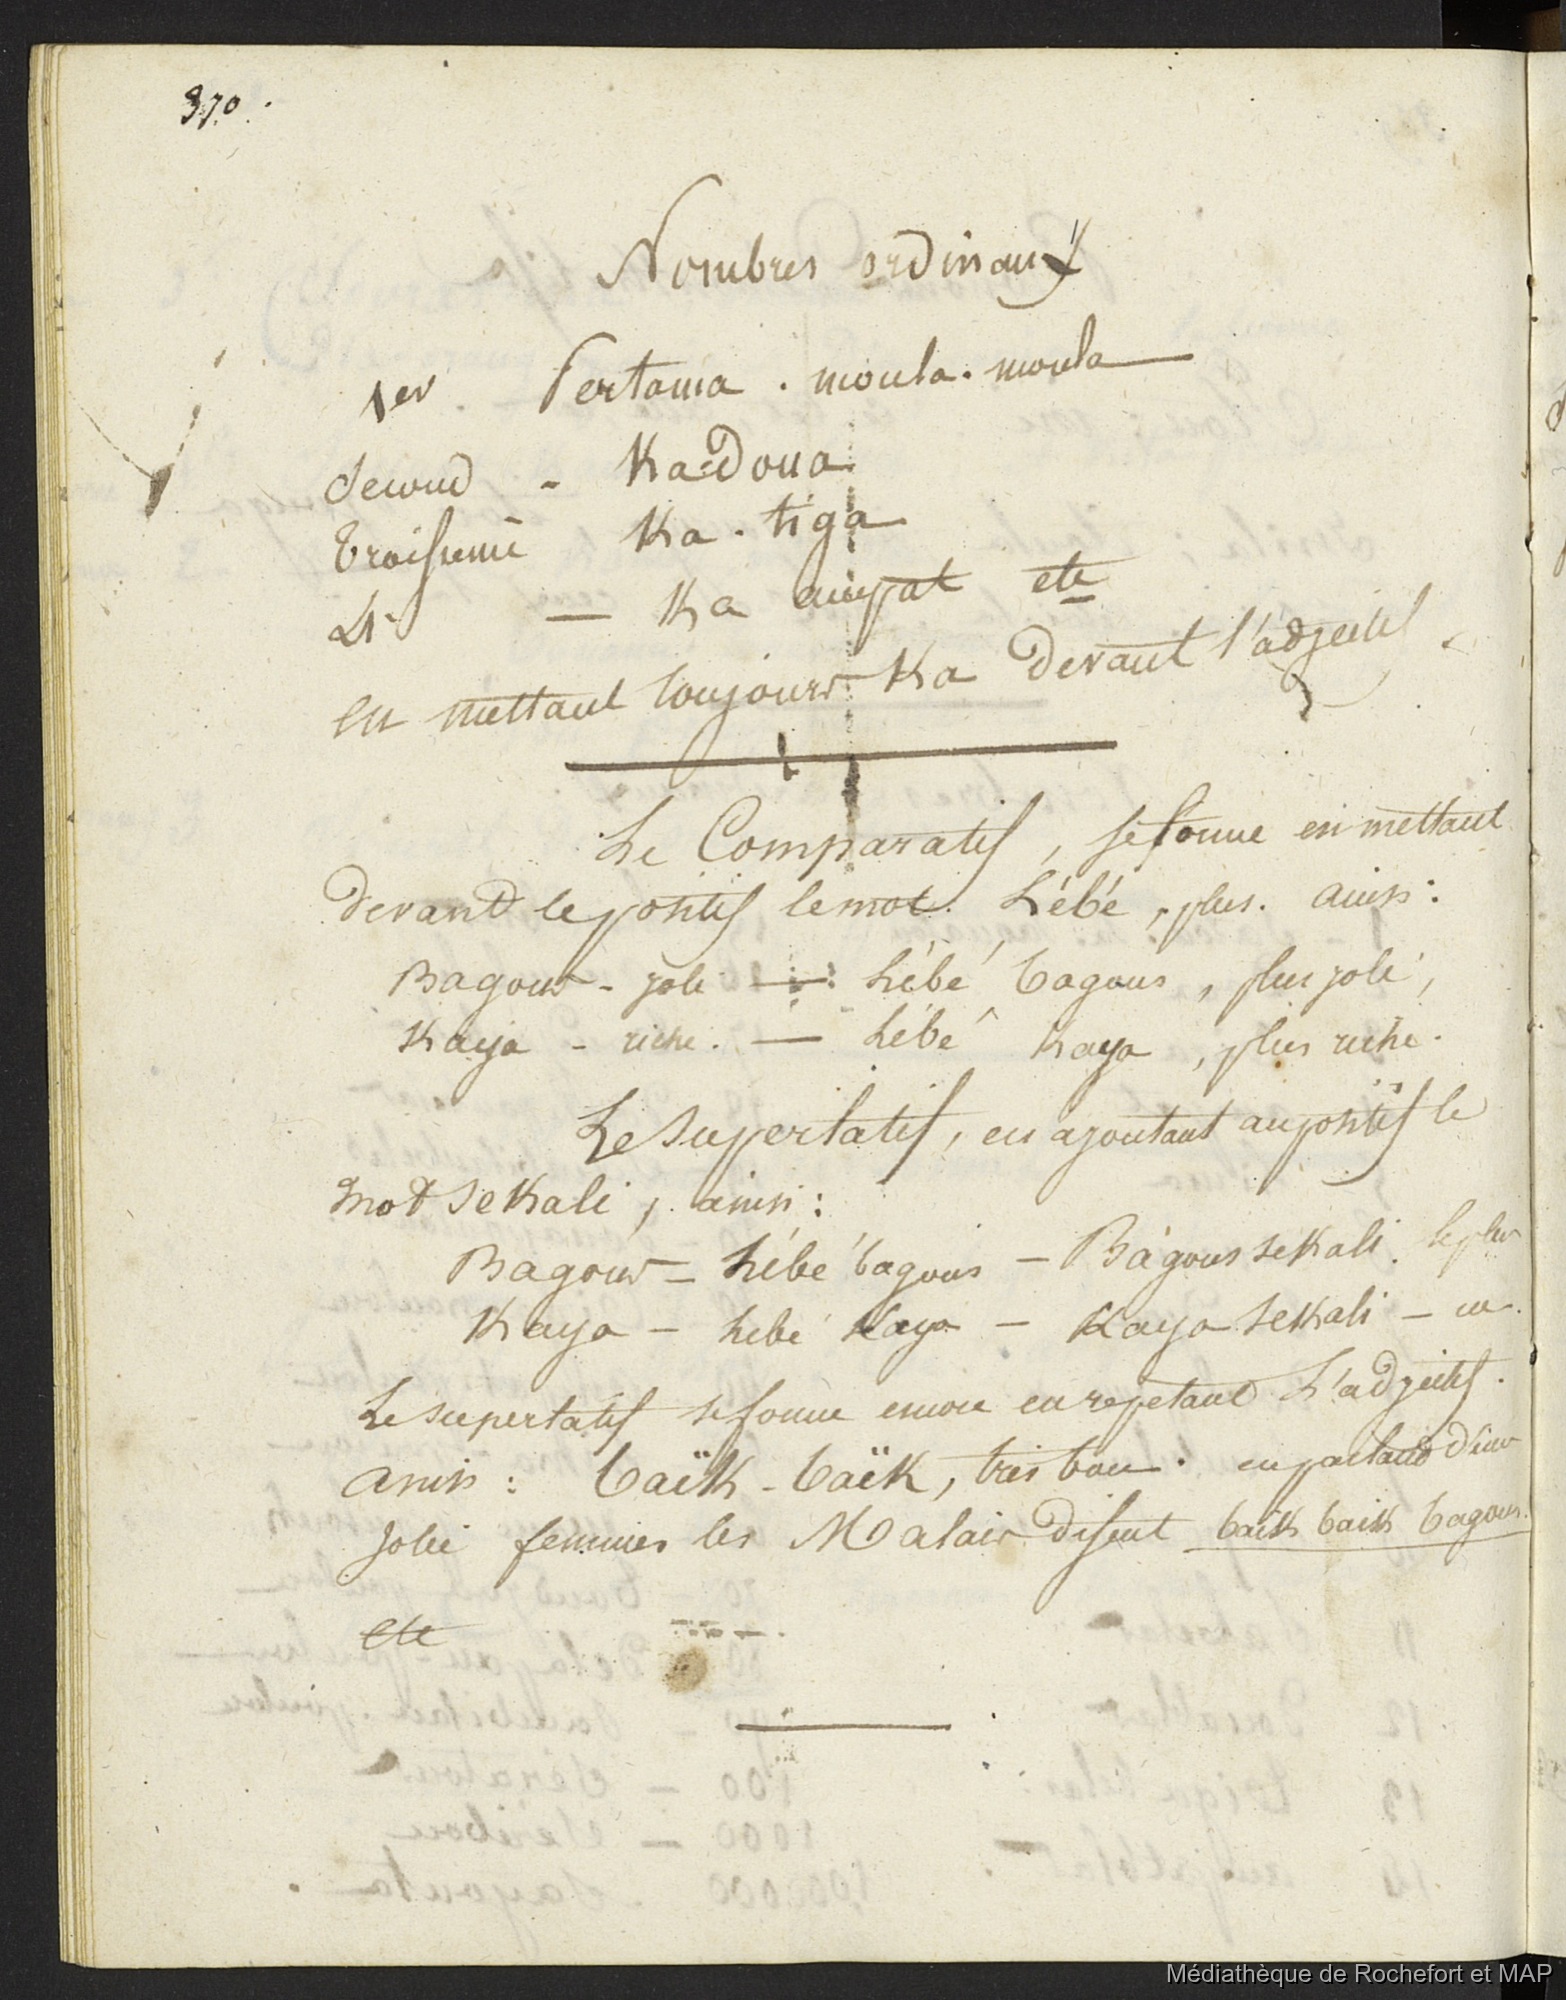 370.
Nombres ordinaux
1er Pertama . moula . moula
Second - Ka-Doua
troisieme Ka - tiga
4e — Ka ampat etc
en mettant toujours Ka devant l'adjectif.
Le Comparatif, se forme en mettant
devant le positif le mot Lébé, plus. ainsi:
Bagous - joli — Lébé bagous, plus joli,
Kaya - riche. — Lébé Kaya, plus riche.
Le Superlatif, en ajoutant au positif le
mot seKali, ainsi:
Bagous - Lébé bagous - Bagous seKali. le plus
Kaya - Lébé Kaya - Kaya seKali -
Le superlatif se forme encore en repetant L'adjectif.
ainsi: baïk-baïk, tres bon. en parlant d'une
jolie femmes les Malais disent baik baik bagous.
etc
Médiathèque de Rochefort et MAP